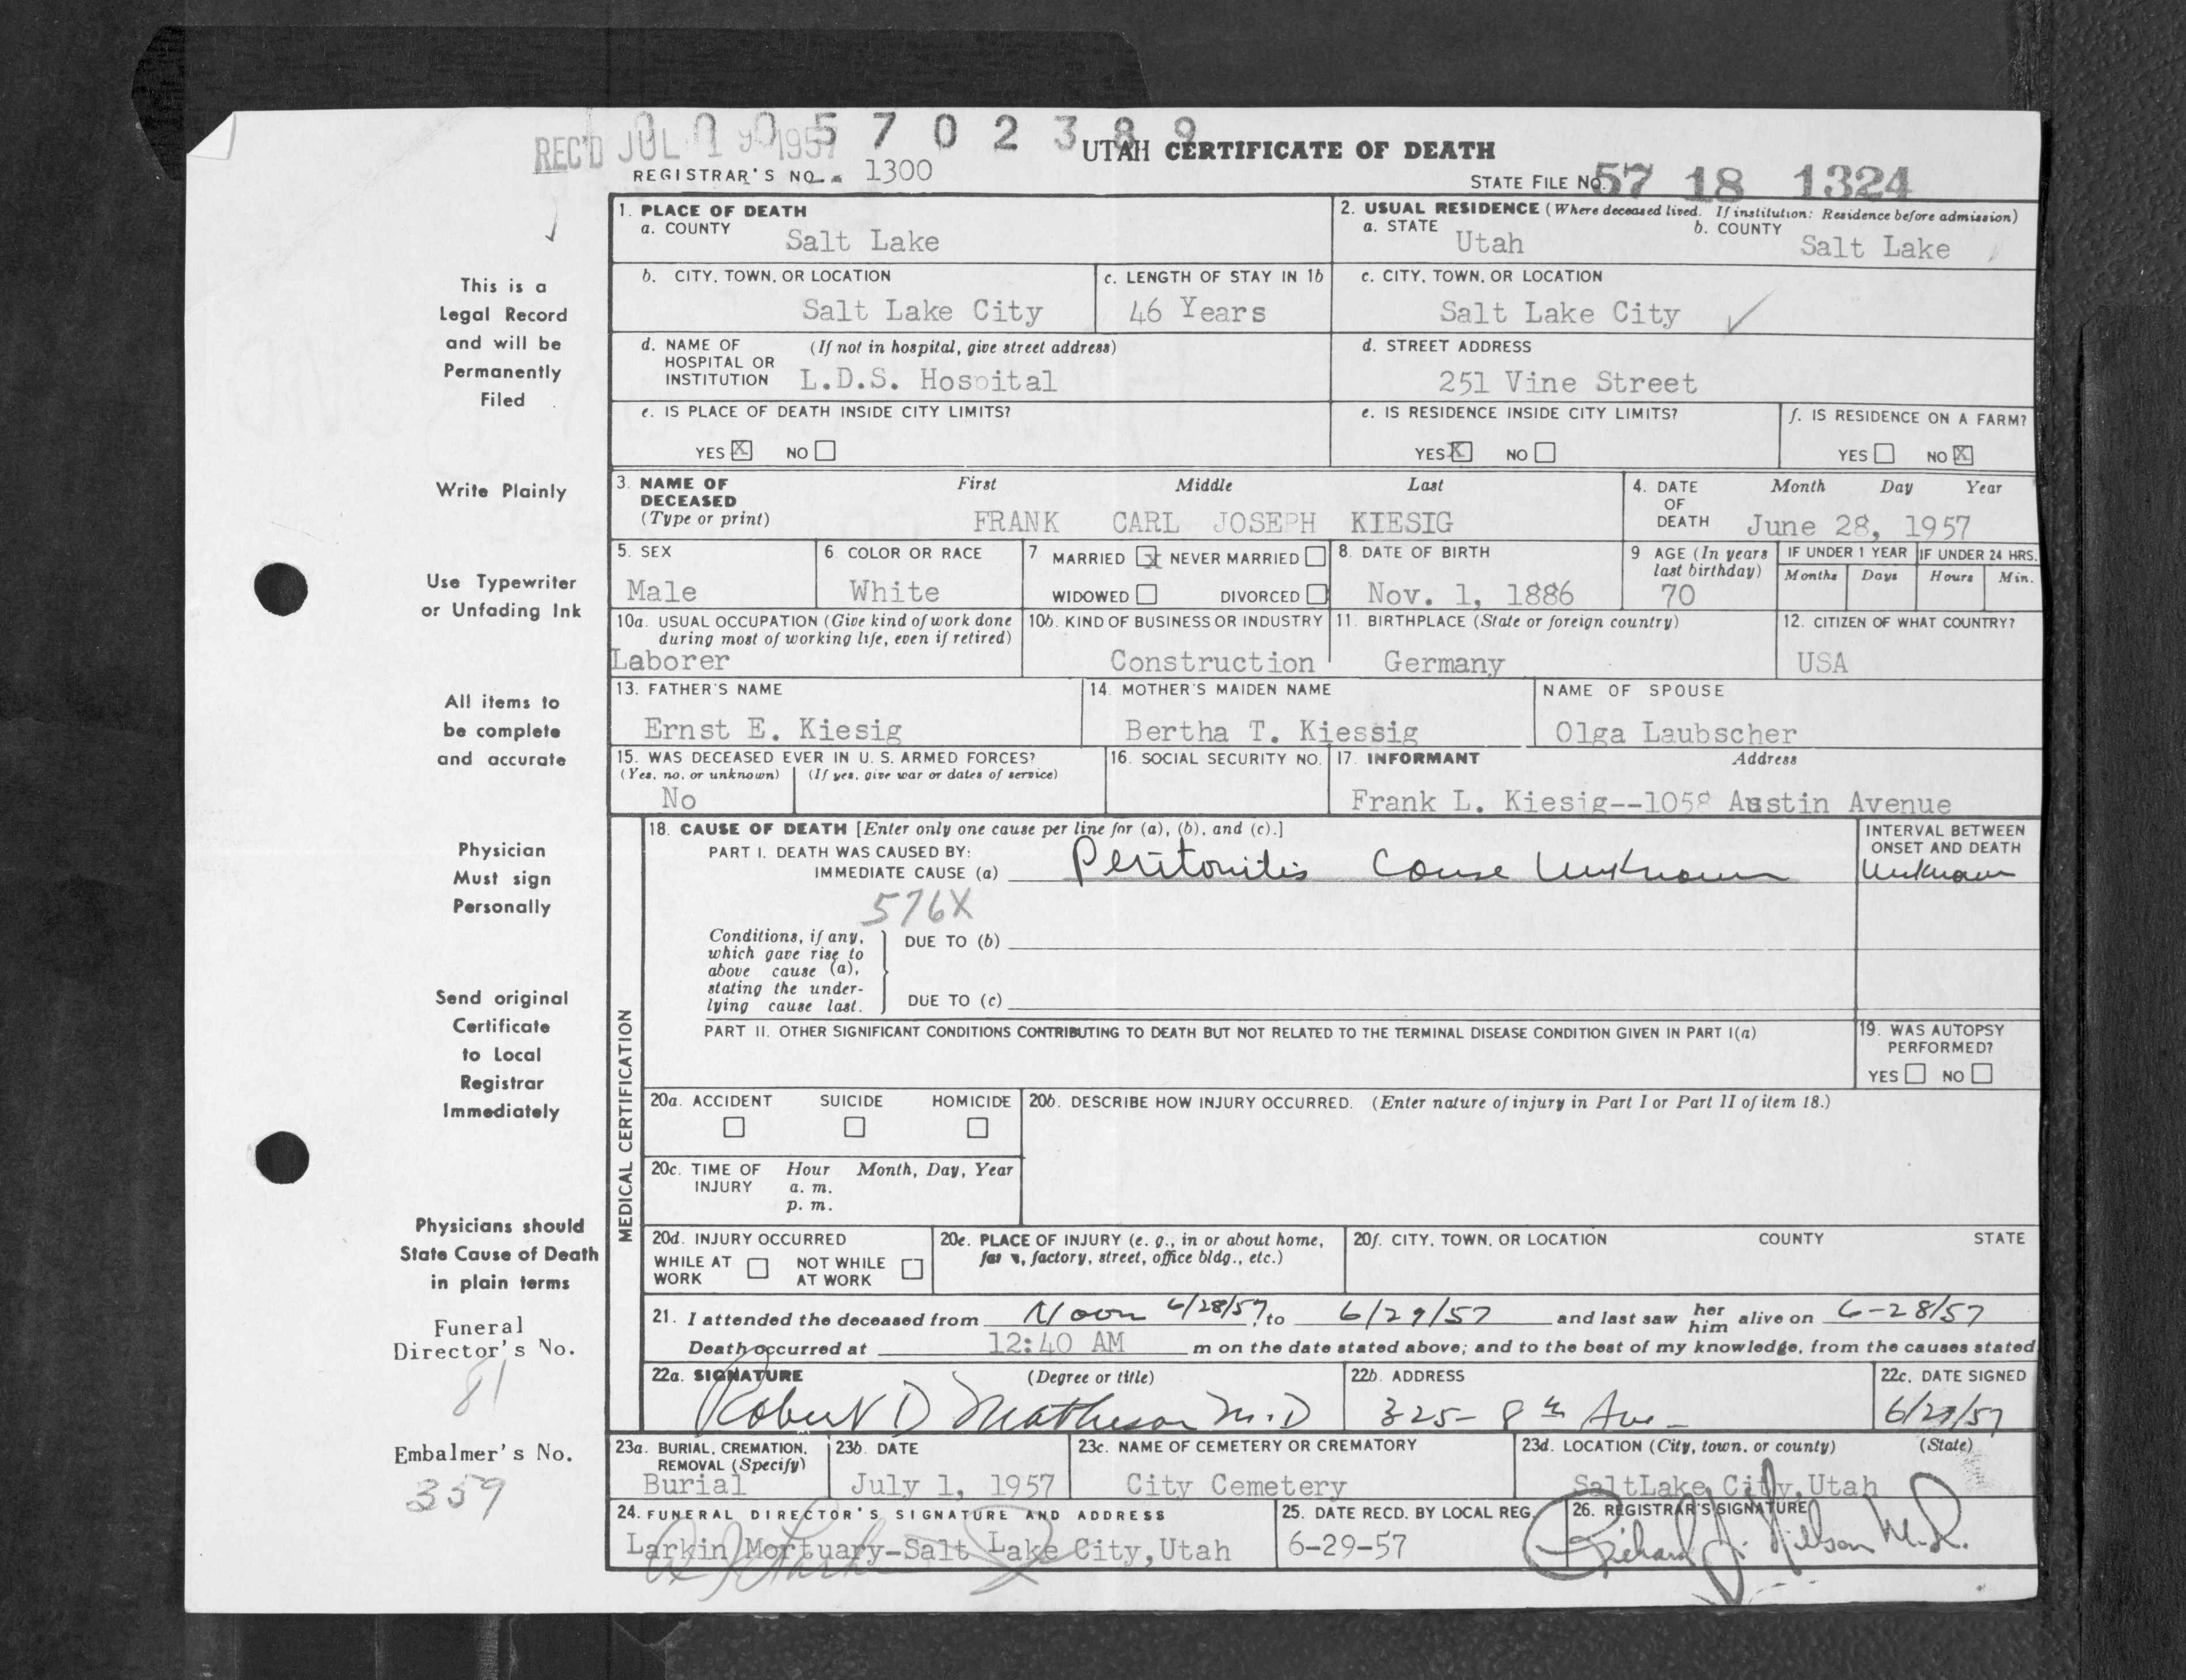 0 0 0 5 7 0 2 3 8 9
REC'D JUL 1 9 1957
UTAH CERTIFICATE OF DEATH
REGISTRAR'S NO. 1300
STATE FILE NO. 57 18 1324
1. PLACE OF DEATH
a. COUNTY
Salt Lake
2. USUAL RESIDENCE (Where deceased lived. If institution: Residence before admission)
a. STATE Utah
b. COUNTY Salt Lake
b. CITY, TOWN, OR LOCATION
Salt Lake City
c. LENGTH OF STAY IN 1b
46 Years
c. CITY, TOWN, OR LOCATION
Salt Lake City
d. NAME OF HOSPITAL OR INSTITUTION (If not in hospital, give street address)
L.D.S. Hospital
d. STREET ADDRESS
251 Vine Street
e. IS PLACE OF DEATH INSIDE CITY LIMITS?
YES X NO
e. IS RESIDENCE INSIDE CITY LIMITS?
YES X NO
f. IS RESIDENCE ON A FARM?
YES NO X
3. NAME OF DECEASED (Type or print)
First Middle Last
FRANK CARL JOSEPH KIESIG
4. DATE OF DEATH Month Day Year
June 28, 1957
5. SEX
Male
6. COLOR OR RACE
White
7 MARRIED X NEVER MARRIED
WIDOWED DIVORCED
8. DATE OF BIRTH
Nov. 1, 1886
9 AGE (In years last birthday)
70
IF UNDER 1 YEAR
Months Days
IF UNDER 24 HRS.
Hours Min.
10a. USUAL OCCUPATION (Give kind of work done during most of working life, even if retired)
Laborer
10b. KIND OF BUSINESS OR INDUSTRY
Construction
11. BIRTHPLACE (State or foreign country)
Germany
12. CITIZEN OF WHAT COUNTRY?
USA
13. FATHER'S NAME
Ernst E. Kiesig
14. MOTHER'S MAIDEN NAME
Bertha T. Kiessig
NAME OF SPOUSE
Olga Laubscher
15. WAS DECEASED EVER IN U. S. ARMED FORCES?
(Yes, no, or unknown) (If yes, give war or dates of service)
No
16. SOCIAL SECURITY NO.
17. INFORMANT Address
Frank L. Kiesig--1058 Austin Avenue
MEDICAL CERTIFICATION
18. CAUSE OF DEATH [Enter only one cause per line for (a), (b), and (c).]
PART I. DEATH WAS CAUSED BY:
IMMEDIATE CAUSE (a) Peritonitis Cause Unknown
INTERVAL BETWEEN ONSET AND DEATH
Unknown
576X
Conditions, if any, which gave rise to above cause (a), stating the underlying cause last.
DUE TO (b)
DUE TO (c)
PART II. OTHER SIGNIFICANT CONDITIONS CONTRIBUTING TO DEATH BUT NOT RELATED TO THE TERMINAL DISEASE CONDITION GIVEN IN PART I(a)
19. WAS AUTOPSY PERFORMED?
YES NO
20a. ACCIDENT SUICIDE HOMICIDE
20b. DESCRIBE HOW INJURY OCCURRED. (Enter nature of injury in Part I or Part II of item 18.)
20c. TIME OF INJURY Hour Month, Day, Year
a. m.
p. m.
20d. INJURY OCCURRED
WHILE AT WORK NOT WHILE AT WORK
20e. PLACE OF INJURY (e. g., in or about home, factory, street, office bldg., etc.)
20f. CITY, TOWN, OR LOCATION COUNTY STATE
21. I attended the deceased from Noon 6/28/57, to 6/29/57 and last saw her him alive on 6-28/57
Death occurred at 12:40 AM m on the date stated above; and to the best of my knowledge, from the causes stated
22a. SIGNATURE (Degree or title)
Robert D Matheson M.D
22b. ADDRESS
325- 8th Ave-
22c. DATE SIGNED
6/29/57
23a. BURIAL, CREMATION, REMOVAL (Specify)
Burial
23b. DATE
July 1, 1957
23c. NAME OF CEMETERY OR CREMATORY
City Cemetery
23d. LOCATION (City, town, or county) (State)
SaltLake City, Utah
24. FUNERAL DIRECTOR'S SIGNATURE AND ADDRESS
Larkin Mortuary-Salt Lake City, Utah
25. DATE RECD. BY LOCAL REG.
6-29-57
26. REGISTRAR'S SIGNATURE
This is a
Legal Record
and will be
Permanently
Filed
Write Plainly
Use Typewriter
or Unfading Ink
All items to
be complete
and accurate
Physician
Must sign
Personally
Send original
Certificate
to Local
Registrar
Immediately
Physicians should
State Cause of Death
in plain terms
Funeral
Director's No.
81
Embalmer's No.
359